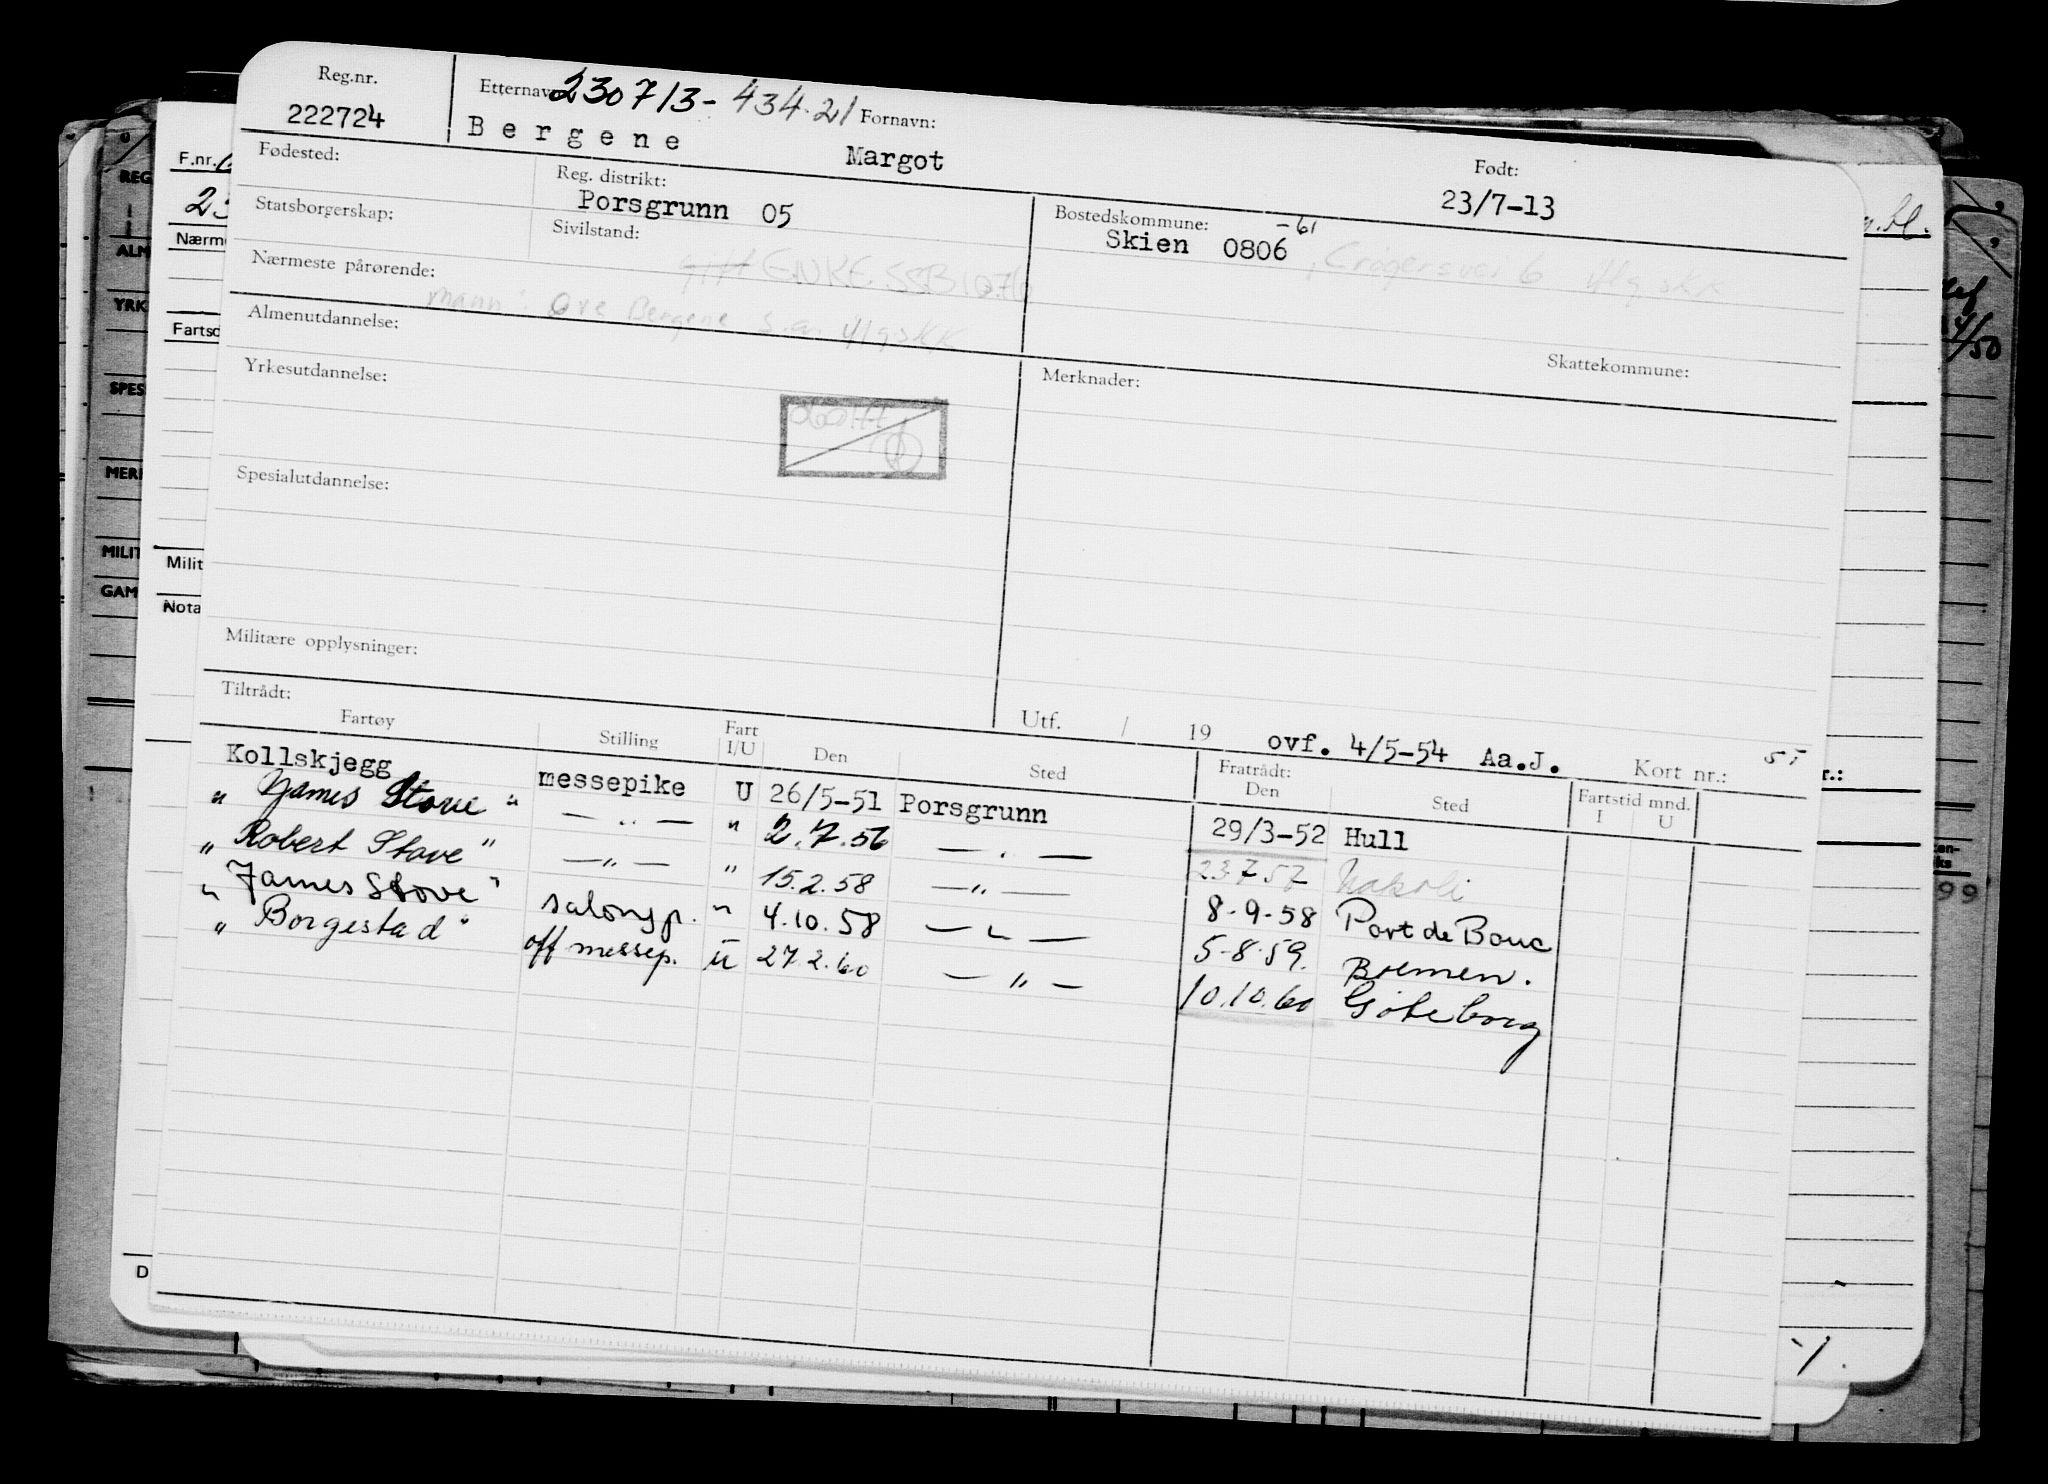 Reg.nr. Etternavn 230713-434.21 Fornavn: Født:
222724 Bergene Margot 23/7-13
Fødested: Reg. distrikt: Porsgrunn 05 Bostedskommune: -61
Skien 0806
Statsborgerskap: Sivilstand: gift ENKE SSB 1076
Nærmeste pårørende: mann: Ove Bergene s.a.
Almenutdannelse: Skattekommune:
Yrkesutdannelse: Merknader:
Spesialutdannelse:
Militære opplysninger:
Tiltrådt: Utf. / 19 ovf. 4/5-54 Aa.J. Kort nr.:
Fartøy Stilling Fart I/U Den Sted Fratrådt: Den Sted Fartstid mnd. I U
Kollskjegg messepike U 26/5-51 Porsgrunn 29/3-52 Hull
" James Stove " — " — " 2.7.56 — " — 23.7.57 Napoli
" Robert Stove " — " — " 15.2.58 — " — 8-9-58 Port de Bouc
" James Stove " salongp. " 4.10.58 — " — 5-8-59. Bremen.
" Borgestad " off messep. U 27.2.60 — " — 10.10.60 Göteborg
F.nr.
Nærm
Fartso
Milit
Nota
D
REG
ALM
YRK
SPES
MERK
MILIT
GAM
4/50
99
r.: